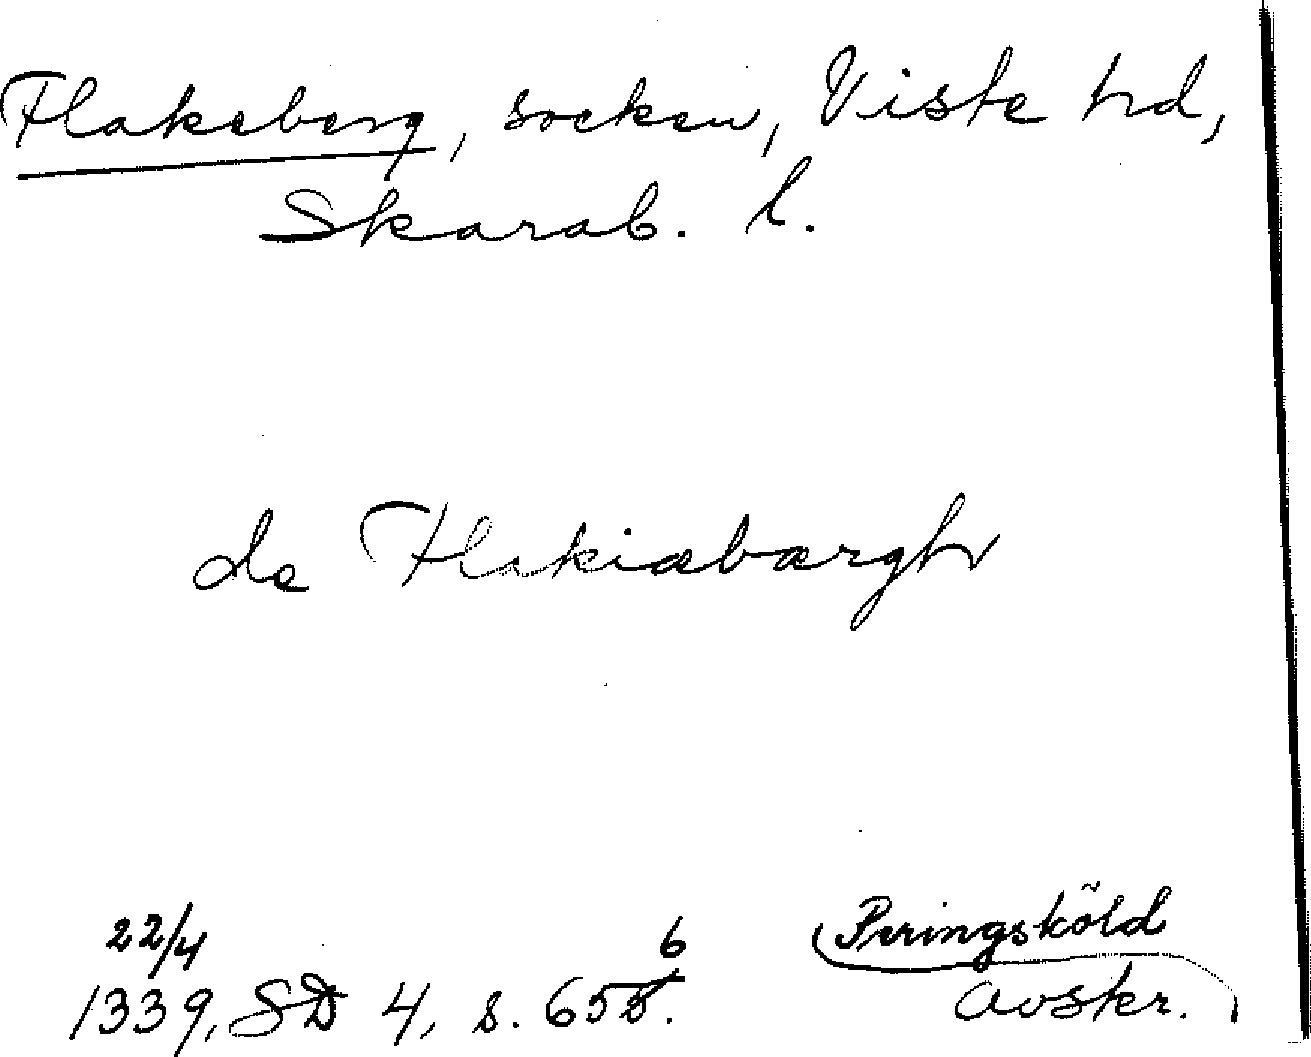 Flakeberg, socken, Viste hd,
Skarab. l.
de Flakiæbærgh
22/4
1339, SD 4, s. 656.
(Peringsköld
avskr.)